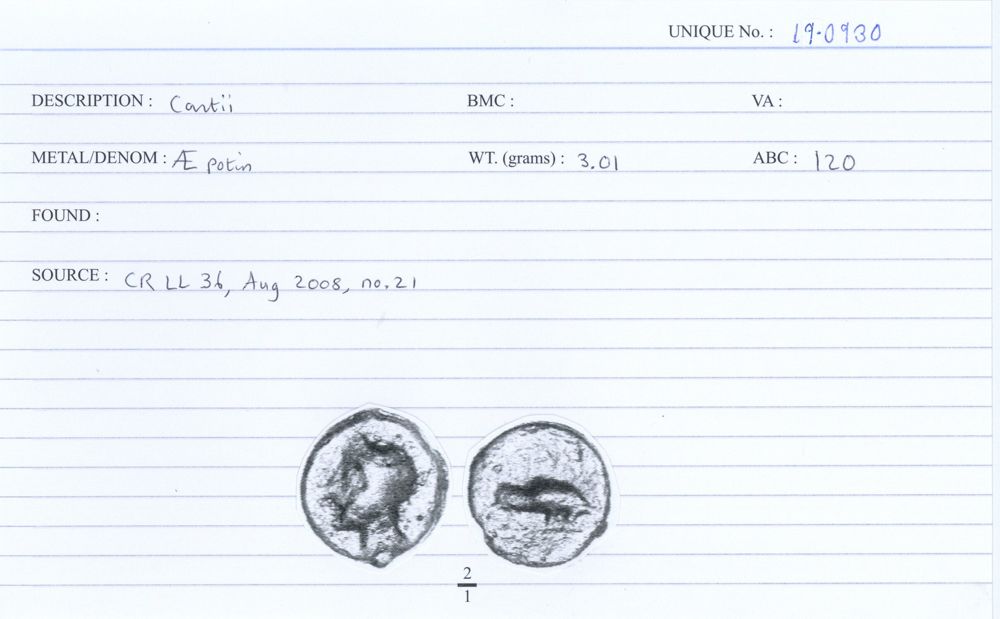 UNIQUE No. : 19-0930
DESCRIPTION : Cantii BMC : VA :
METAL/DENOM : Æ potin WT. (grams) : 3.01 ABC : 120
FOUND :
SOURCE : CR LL 36, Aug 2008, no. 21
2
1